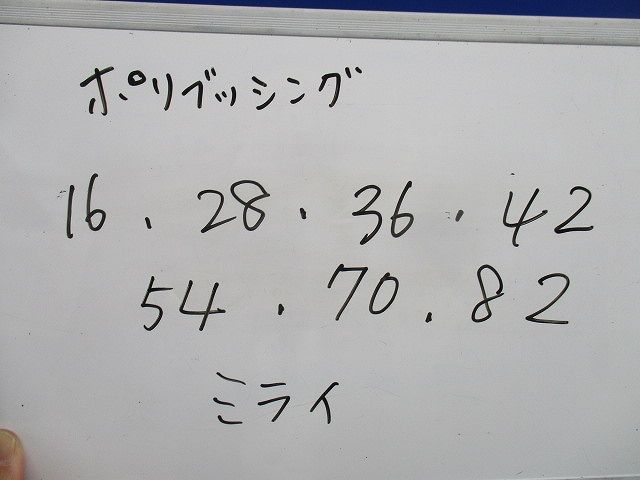 ポリブッシング
16 . 28 . 36 . 42
54 . 70 . 82
ミライ